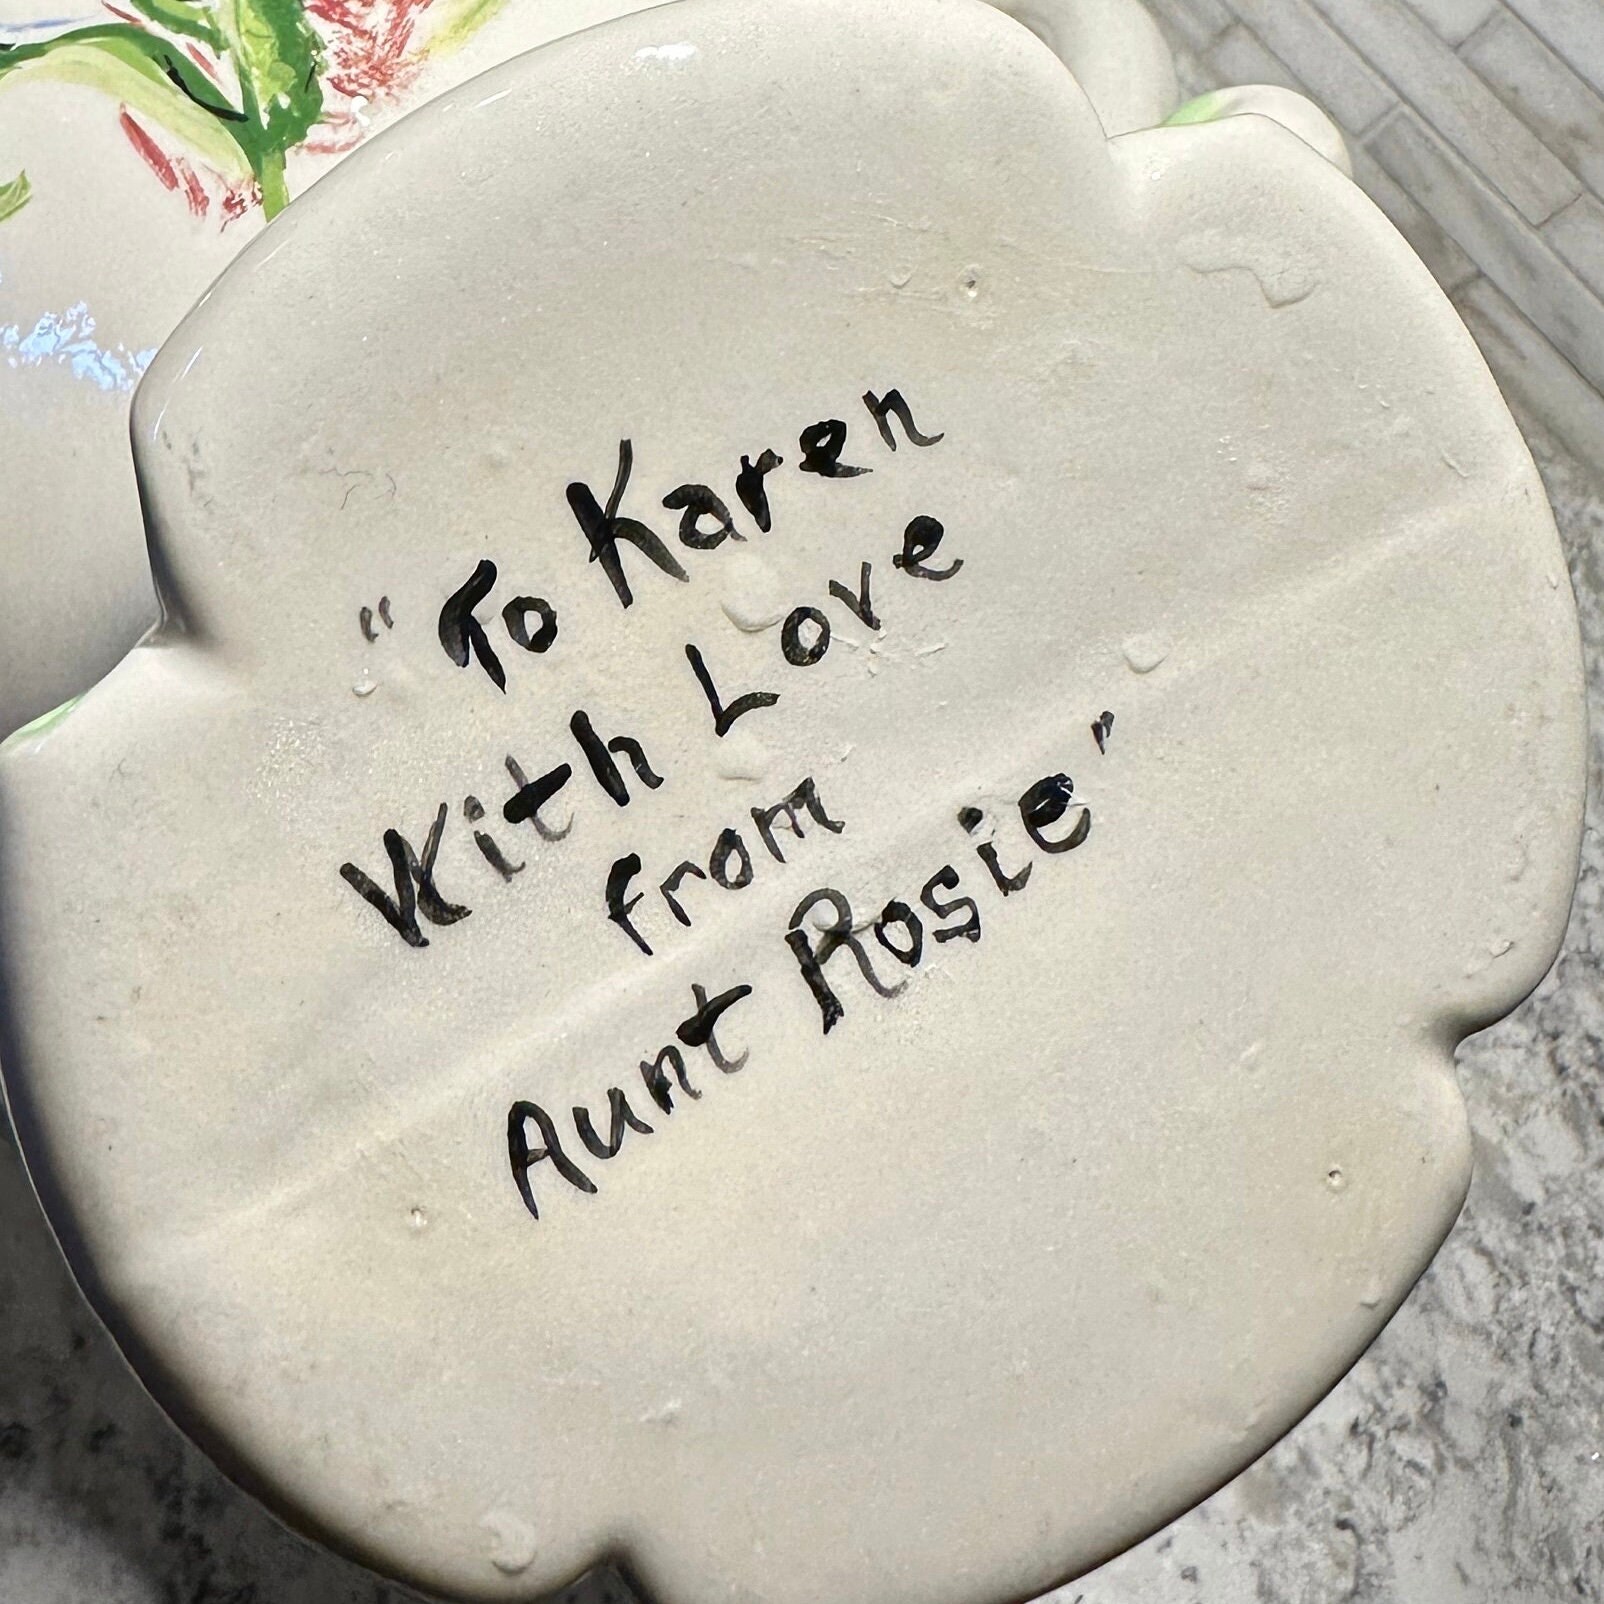 "To Karen
With Love
from
Aunt Rosie"